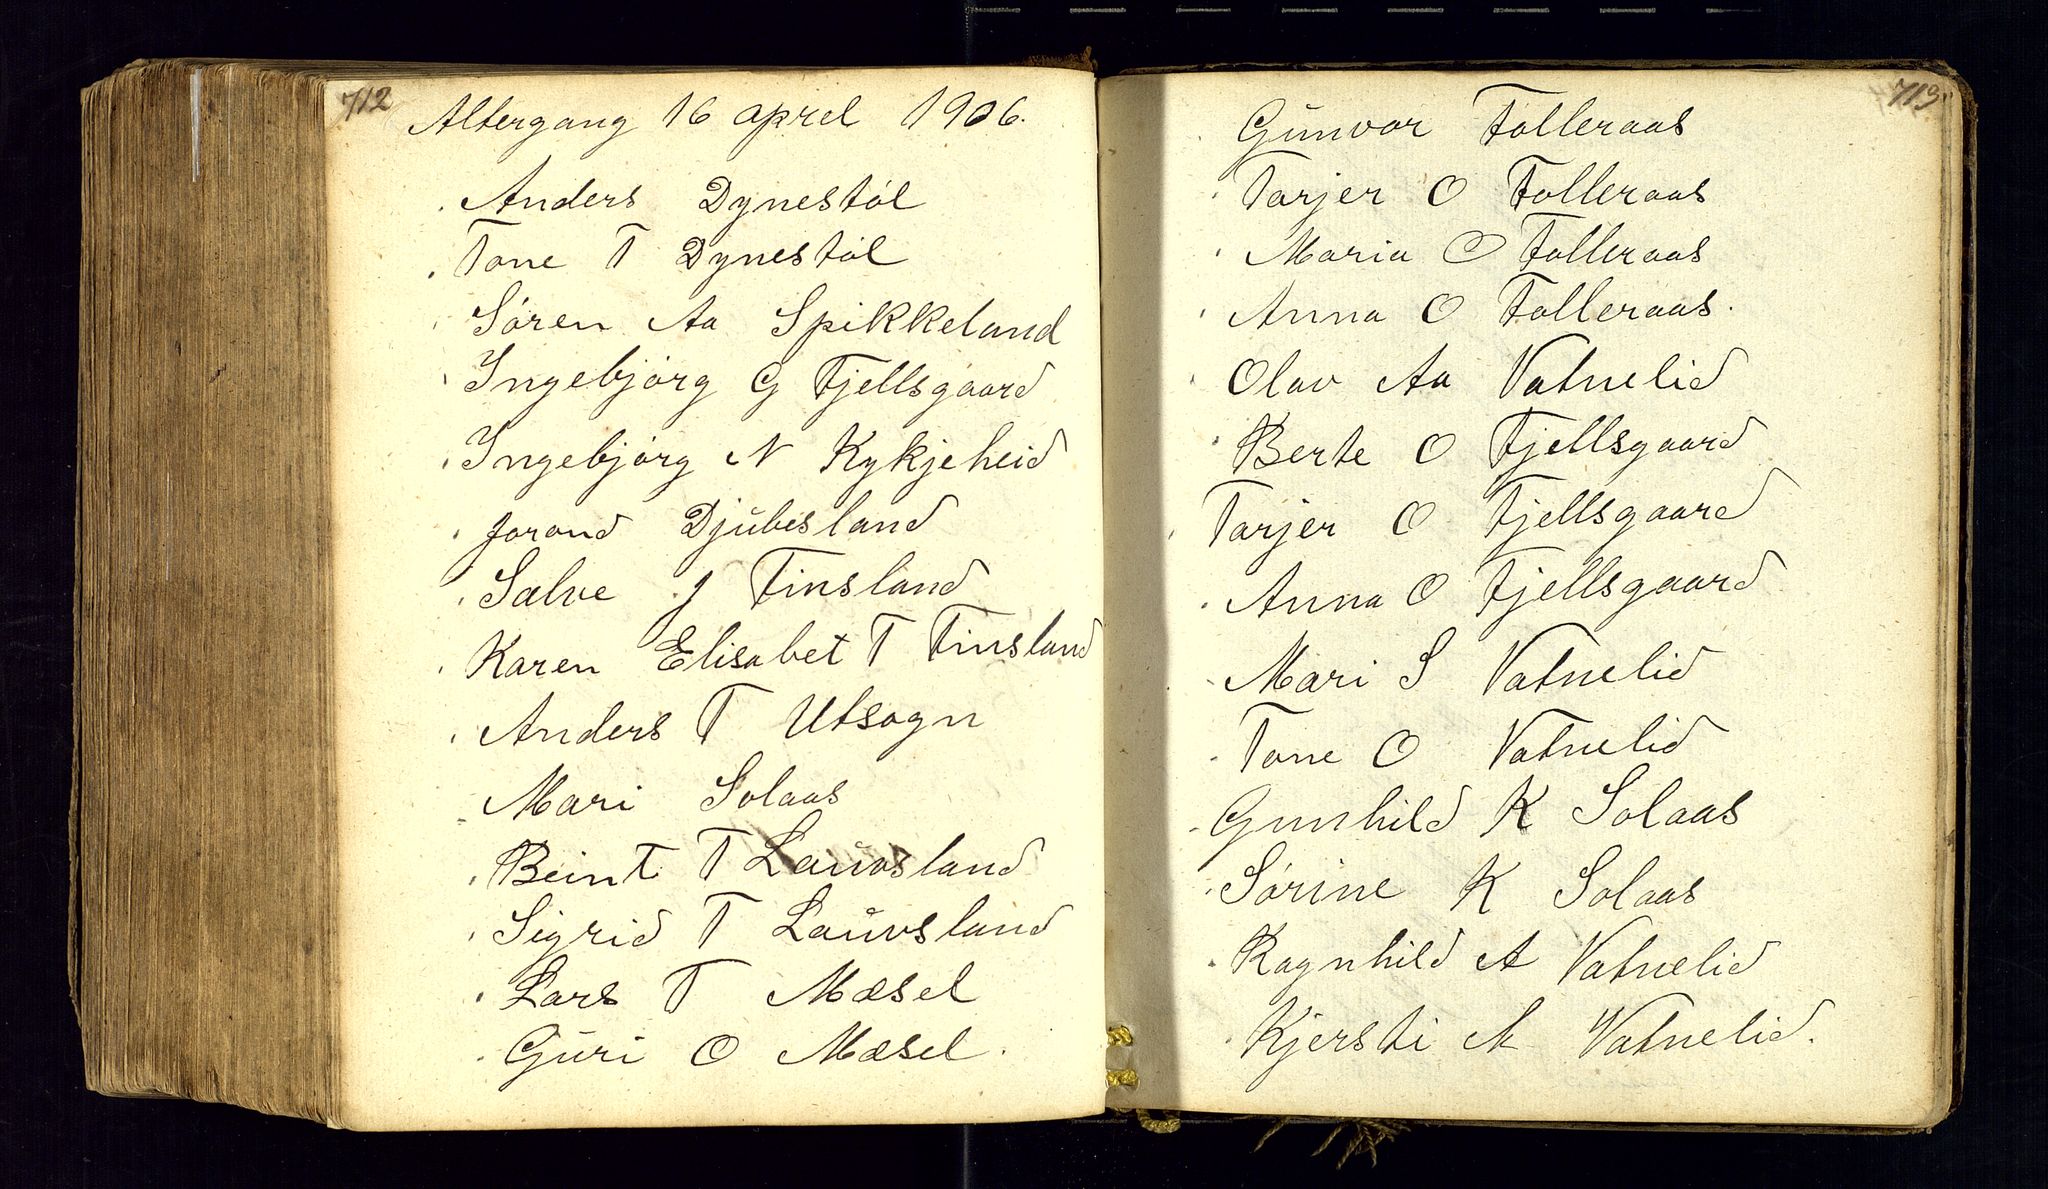 712
Altergang 16 aprel 1906.
Anders Dynestøl
Tone T Dynestøl
Søren Aa Spikkeland
Ingebjørg G Fjellsgaard
Ingebjørg N Kykjeheid
Jorond Djubesland
Salve J Finsland
Karen Elisabet T Finsland
Anders T Utsogn
Mari Solaas
Beint T Lauvsland
Sigrid T Lauvsland
Lars T Mæsel
Guri O Mæsel.
713
Gunvor Folleraas
Tarjer O Folleraas
Maria O Folleraas
Anna O Folleraas.
Olav Aa Vatnelid
Berte O Fjellsgaard
Tarjer O Fjellsgaard
Anna O Fjellsgaard
Mari S Vatnelid
Tone O Vatnelid
Gunhild K Solaas
Sørine K Solaas
Ragnhild A Vatnelid
Kjersti A Vatnelid.